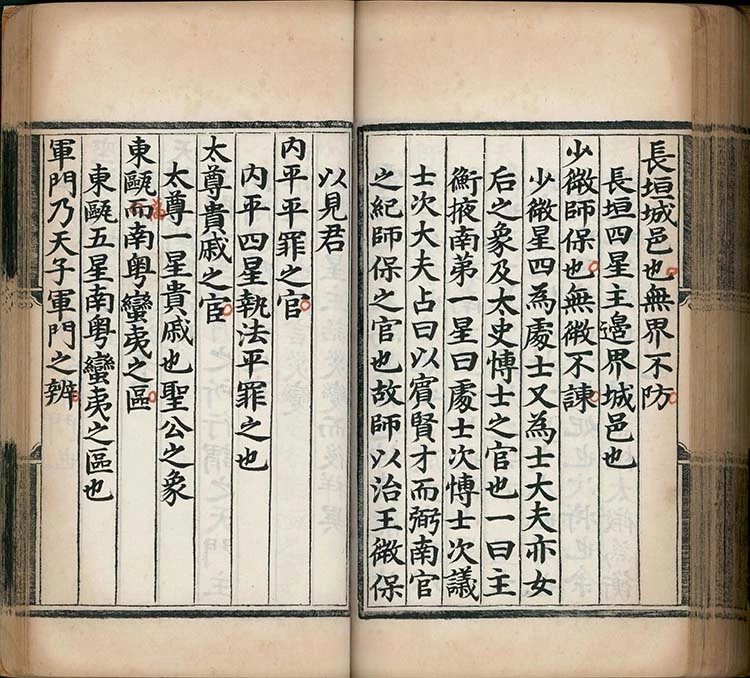 長垣城邑也無界不防
長垣四星主邉界城邑也
少微師保也無微不諫
少微星四為處士又為士大夫亦女
后之象及太史愽士之官也一曰主
衡掖南第一星曰處士次愽士次議
士次大夫占曰以賔賢才而弼南官
之紀師保之官也故師以治王微保
以見君
内平平罪之官
内平四星執法平罪之也
太尊貴戚之官
太尊一星貴戚也聖公之象
東甌而南粤蠻夷之區
東甌五星南粤蠻夷之區也
軍門乃天子軍門之辨